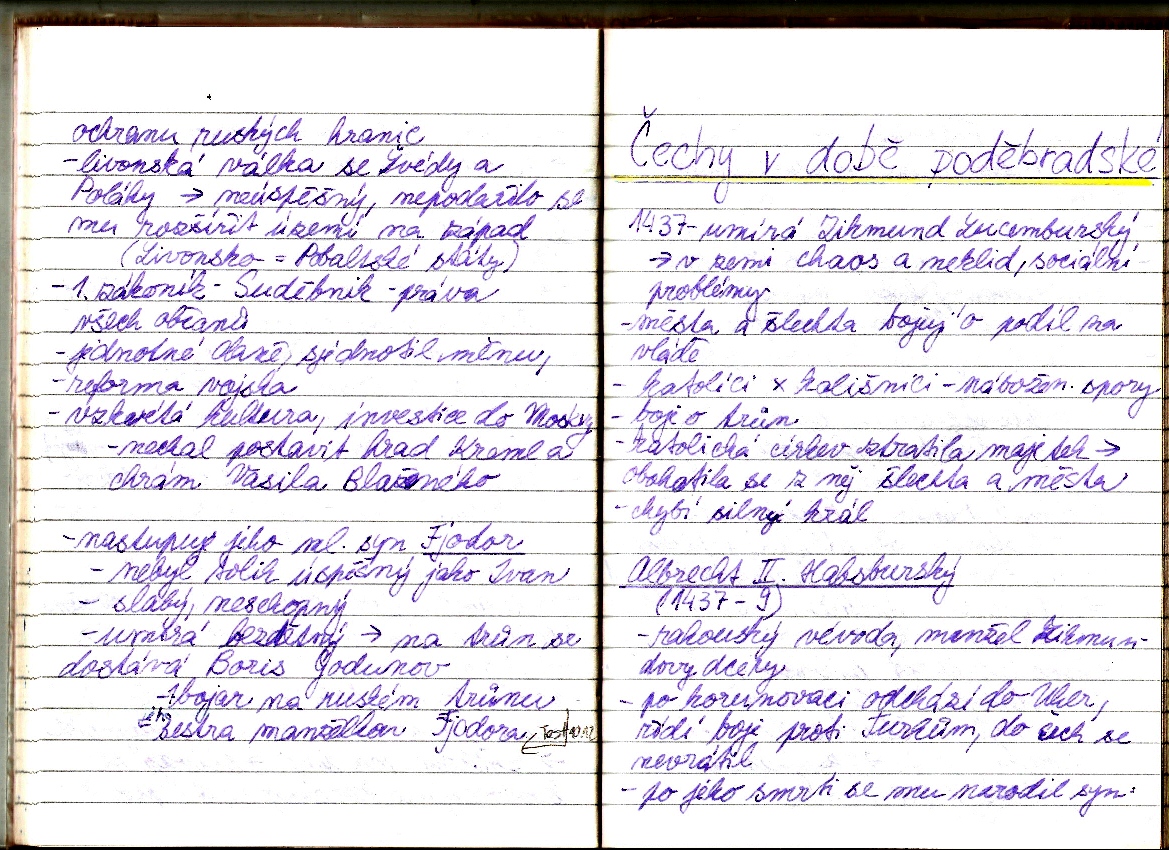 ochranu ruských hranic
- livonská válka se Švédy a
Poláky → neúspěšný, nepodařilo se
mu rozšířit území na západ
(Livonsko = Pobaltské státy)
- 1. zákoník - Suděbnik - práva
všech občanů
- jednotné daně, sjednotil měnu,
- reforma vojska
- vzkvétá kultura, investice do Moskvy
- nechal postavit hrad Kreml a
chrám Vasila Blaženého
- nastupuje jeho ml. syn Fjodor
- nebyl tolik úspěšný jako Ivan
- slabý, neschopný
- umírá bezdětný → na trůn se
dostává Boris Godunov
- 1. bojar na ruském trůnu
- jeho sestra manželkou Fjodora
Čechy v době poděbradské
1437 - umírá Zikmund Lucemburský
→ v zemi chaos a neklid, sociální
problémy
- města a šlechta bojují o podíl na
vládě
- katolíci × kališníci - nábožen. spory
- boj o trůn
- katolická církev ztratila majetek →
obohatila se z něj šlechta a města
- chybí silný král
Albrecht II. Habsburský
(1437 - 9)
- rakouský vévoda, manžel Zikmun-
dovy dcery
- po korunovaci odchází do Uher,
řídí boje proti Turkům, do Čech se
nevrátil
- po jeho smrti se mu narodil syn: